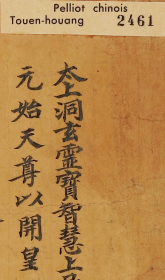 Pelliot chinois
Touen-houang 2461
太上洞玄靈寶智慧上
元始天尊以開皇